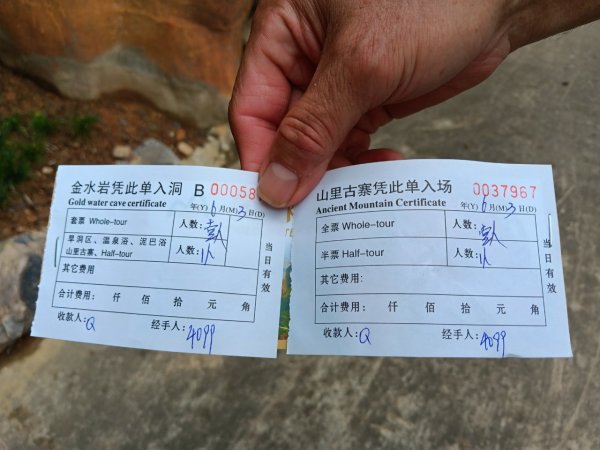 金水岩凭此单入洞 B 00058
Gold water cave certificate
年(Y) 6 月(M) 3 日(D)
套票 Whole-tour 人数: 壹人
旱洞区、温泉浴、泥巴浴
山里古寨、Half-tour 人数: 1人
其它费用
合计费用: 仟 佰 拾 元 角
收款人: Q 经手人: 4099
当日有效
山里古寨凭此单入场 0037967
Ancient Mountain Certificate
年(Y) 6 月(M) 3 日(D)
全票 Whole-tour 人数: 壹人
半票 Half-tour 人数: 1人
其它费用:
合计费用: 仟 佰 拾 元 角
收款人: Q 经手人: 4099
当日有效